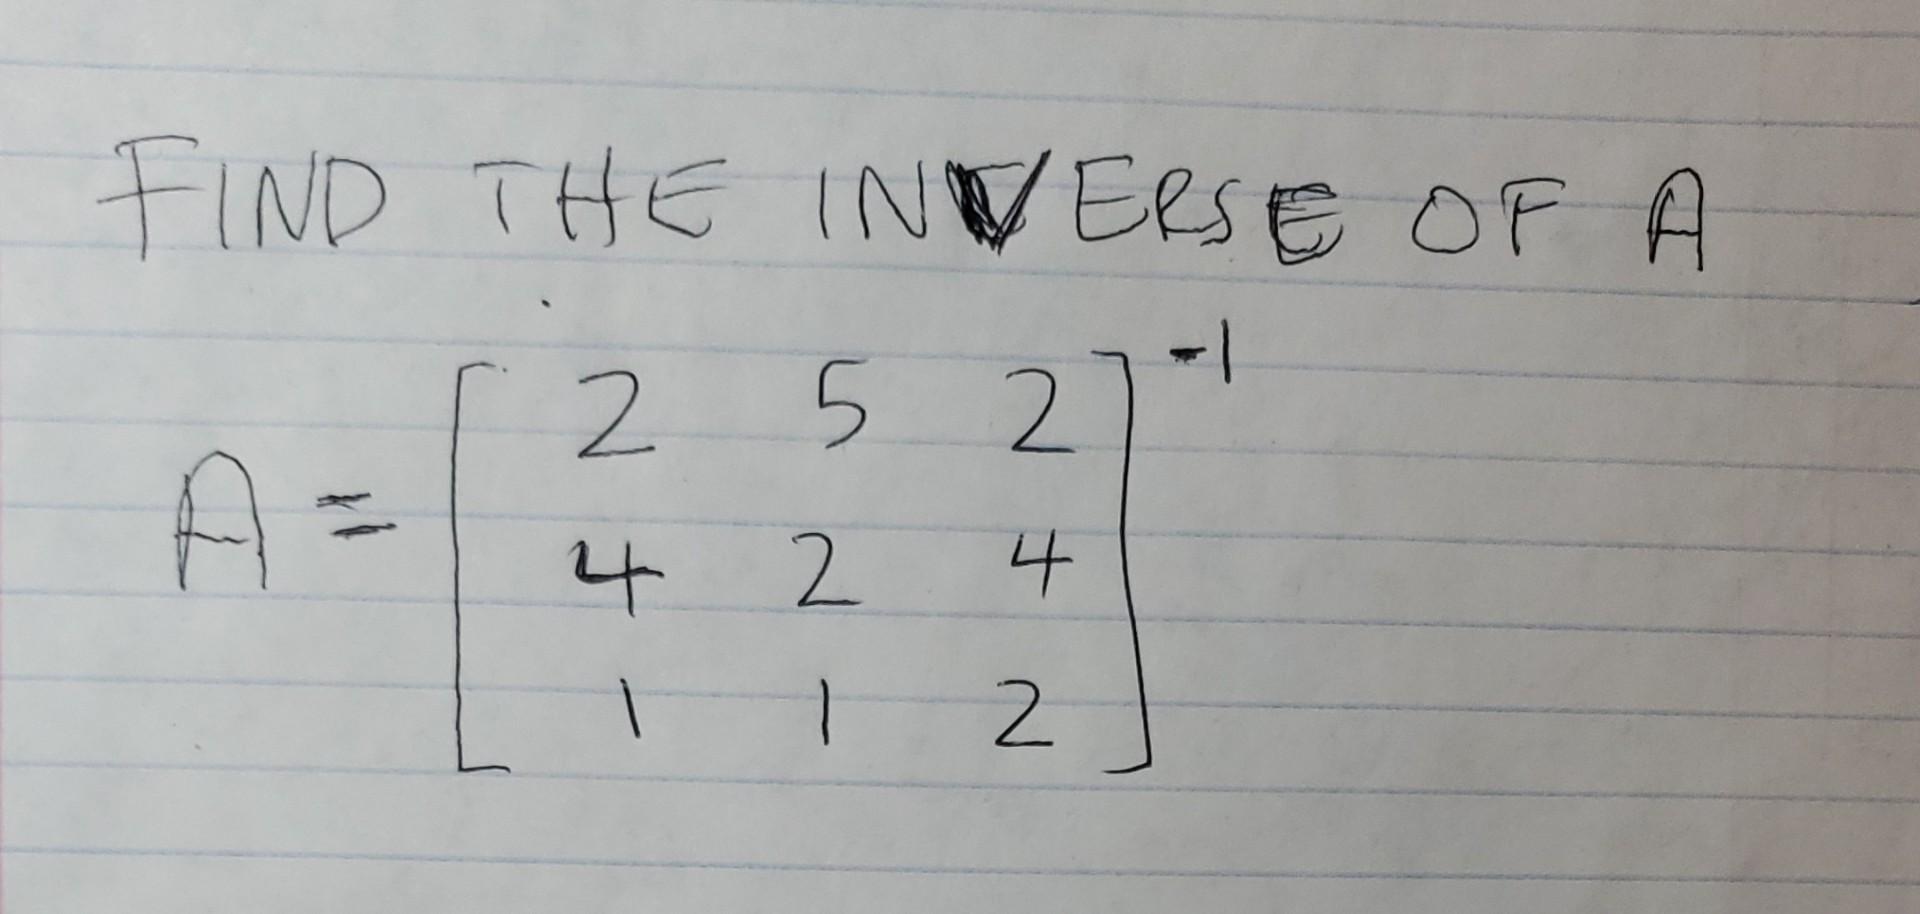 FIND THE INVERSE OF A
A = [ 2 5 2 ]⁻¹
4 2 4
1 1 2